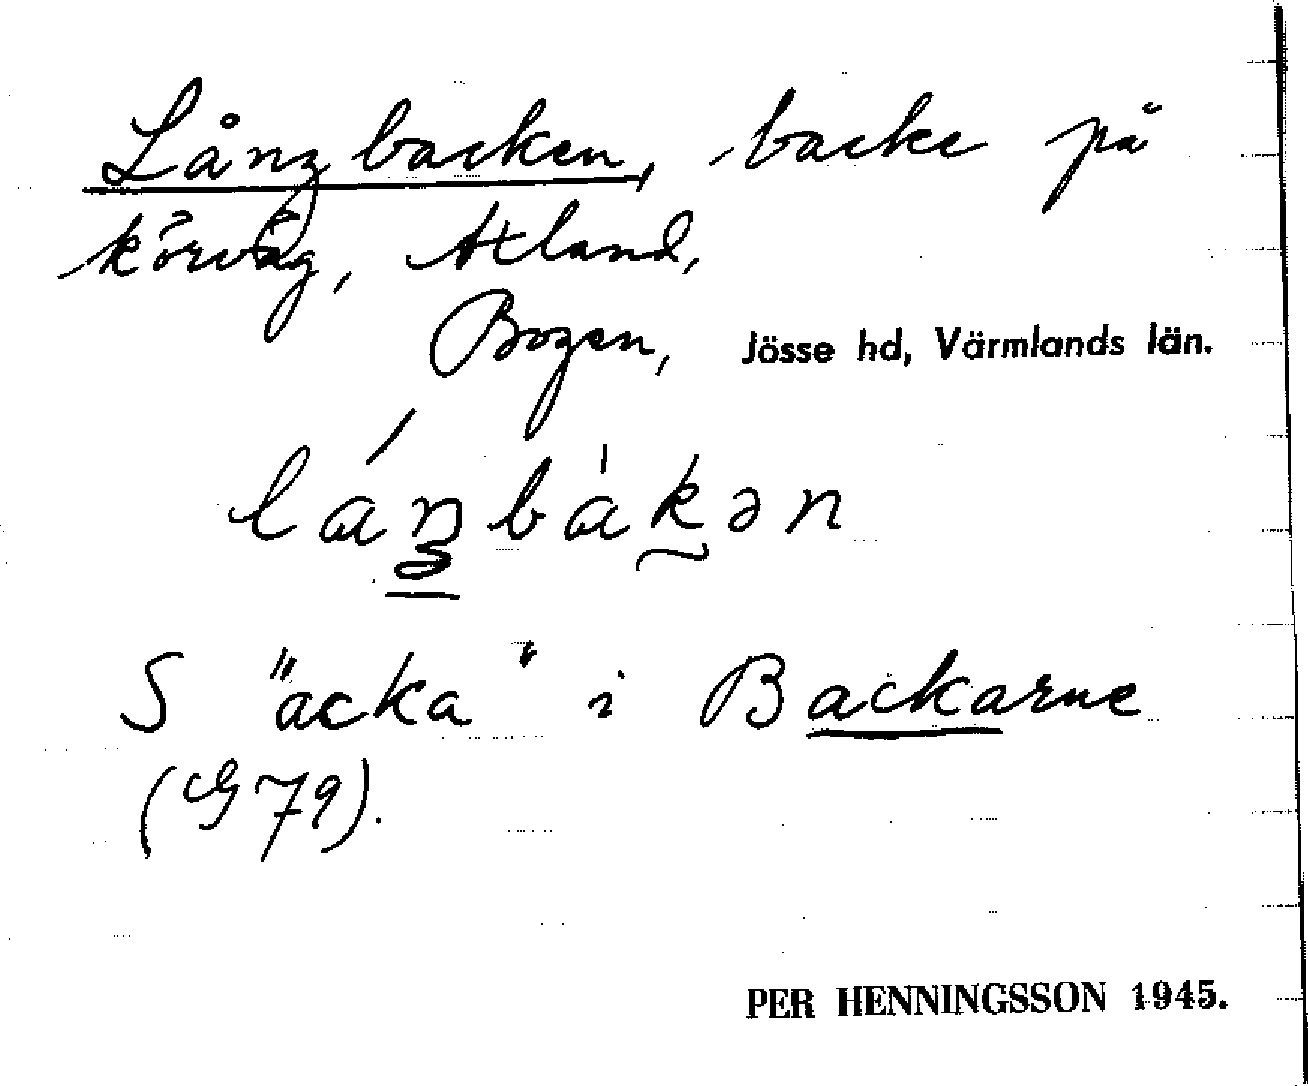 Långbacken, backe på
körväg, Axland,
Bogen, Jösse hd, Värmlands län.
S "acka" i Backarne
(G 79).
PER HENNINGSSON 1945.